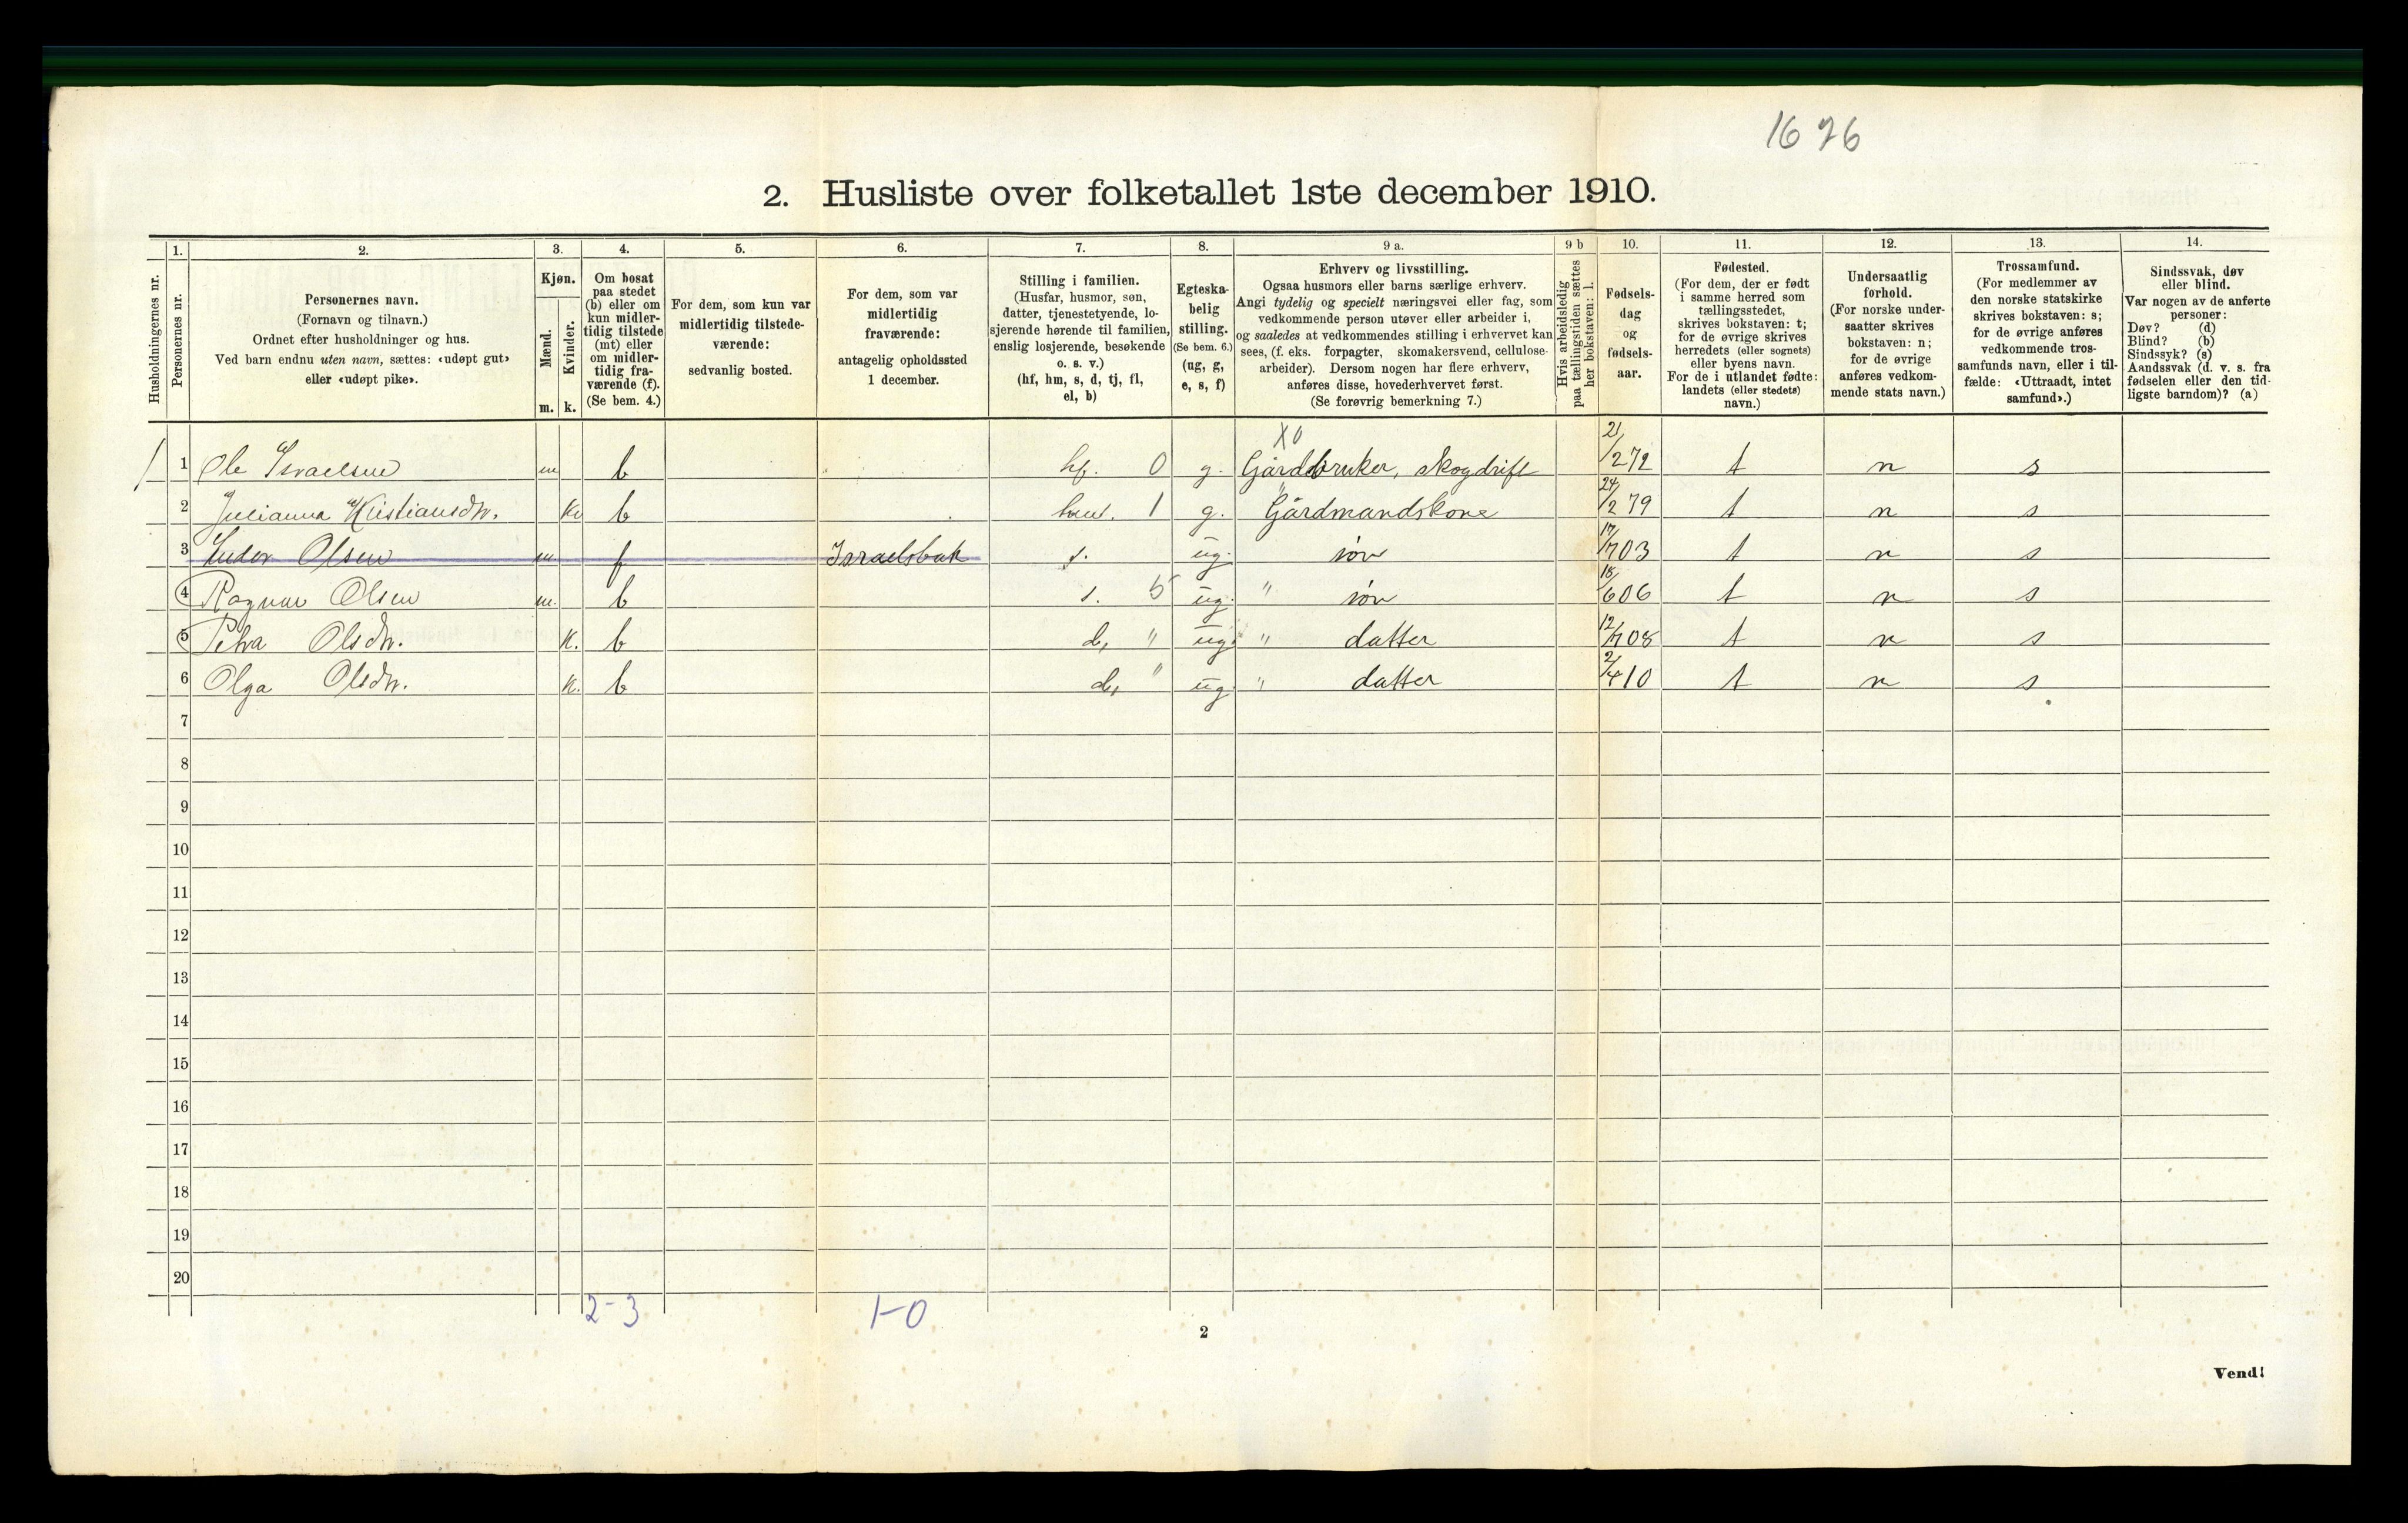 1626
2. Husliste over folketallet 1ste december 1910.
Husholdningernes nr.
1. Personernes nr.
2. Personernes navn.
(Fornavn og tilnavn.)
Ordnet efter husholdninger og hus.
Ved barn endnu uten navn, sættes: «udøpt gut»
eller «udøpt pike».
3. Kjøn.
Mænd. Kvinder.
m. k.
4. Om bosat
paa stedet
(b) eller om
kun midler-
tidig tilstede
(mt) eller
om midler-
tidig fra-
værende (f).
(Se bem. 4.)
5. For dem, som kun var
midlertidig tilstede-
værende:
sedvanlig bosted.
6. For dem, som var
midlertidig
fraværende:
antagelig opholdssted
1 december.
7. Stilling i familien.
(Husfar, husmor, søn,
datter, tjenestetyende, lo-
sjerende hørende til familien,
enslig losjerende, besøkende
o. s. v.)
(hf, hm, s, d, tj, fl,
el, b)
8. Egteska-
belig
stilling.
(Se bem. 6.)
(ug, g,
e, s, f)
9 a. Erhverv og livsstilling.
Ogsaa husmors eller barns særlige erhverv.
Angi tydelig og specielt næringsvei eller fag, som
vedkommende person utøver eller arbeider i,
og saaledes at vedkommendes stilling i erhvervet kan
sees, (f. eks. forpagter, skomakersvend, cellulose-
arbeider). Dersom nogen har flere erhverv,
anføres disse, hovederhvervet først.
(Se forøvrig bemerkning 7.)
9 b Hvis arbeidsledig
paa tællingstiden sættes
her bokstaven: l.
10. Fødsels-
dag
og
fødsels-
aar.
11. Fødested.
(For dem, der er født
i samme herred som
tællingsstedet,
skrives bokstaven: t;
for de øvrige skrives
herredets (eller sognets)
eller byens navn.
For de i utlandet fødte:
landets (eller stedets)
navn.)
12. Undersaatlig
forhold.
(For norske under-
saatter skrives
bokstaven: n;
for de øvrige
anføres vedkom-
mende stats navn.)
13. Trossamfund.
(For medlemmer av
den norske statskirke
skrives bokstaven: s;
for de øvrige anføres
vedkommende tros-
samfunds navn, eller i til-
fælde: «Uttraadt, intet
samfund».)
14. Sindssvak, døv
eller blind.
Var nogen av de anførte
personer:
Døv? (d)
Blind? (b)
Sindssyk? (s)
Aandssvak (d. v. s. fra
fødselen eller den tid-
ligste barndom)? (a)
X0
1 Ole Israelsen m b hf. 0 g. Gårdbruker, skogdrift 21/2 72 t n s
2 Julianna Kristiansdtr. k b hm. 1 g. Gårdmandskone 24/2 79 t n s
3 Olsen m f Israelsbak s. ug. søn 17/7 03 t n s
4 Ragnar Olsen m. b s. 5 ug. " søn 18/6 06 t n s
5 Petra Olsdtr. k. b d, " ug. " datter 12/7 08 t n s
6 Olga Olsdtr. k. b d, " ug. " datter 2/4 10 t n s
7
8
9
10
11
12
13
14
15
16
17
18
19
20
2-3 1-0
2
Vend!